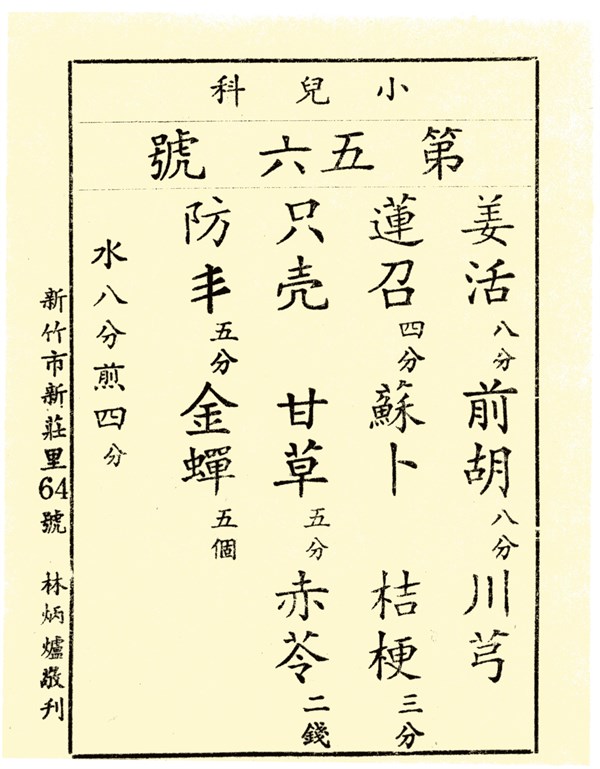 小兒科
第五六號
姜活八分前胡八分川芎
蓮召四分蘇卜桔梗三分
只壳甘草五分赤苓二錢
防丰五分金蟬五個
水八分煎四分
新竹市新莊里64號 林炳爐敬刊